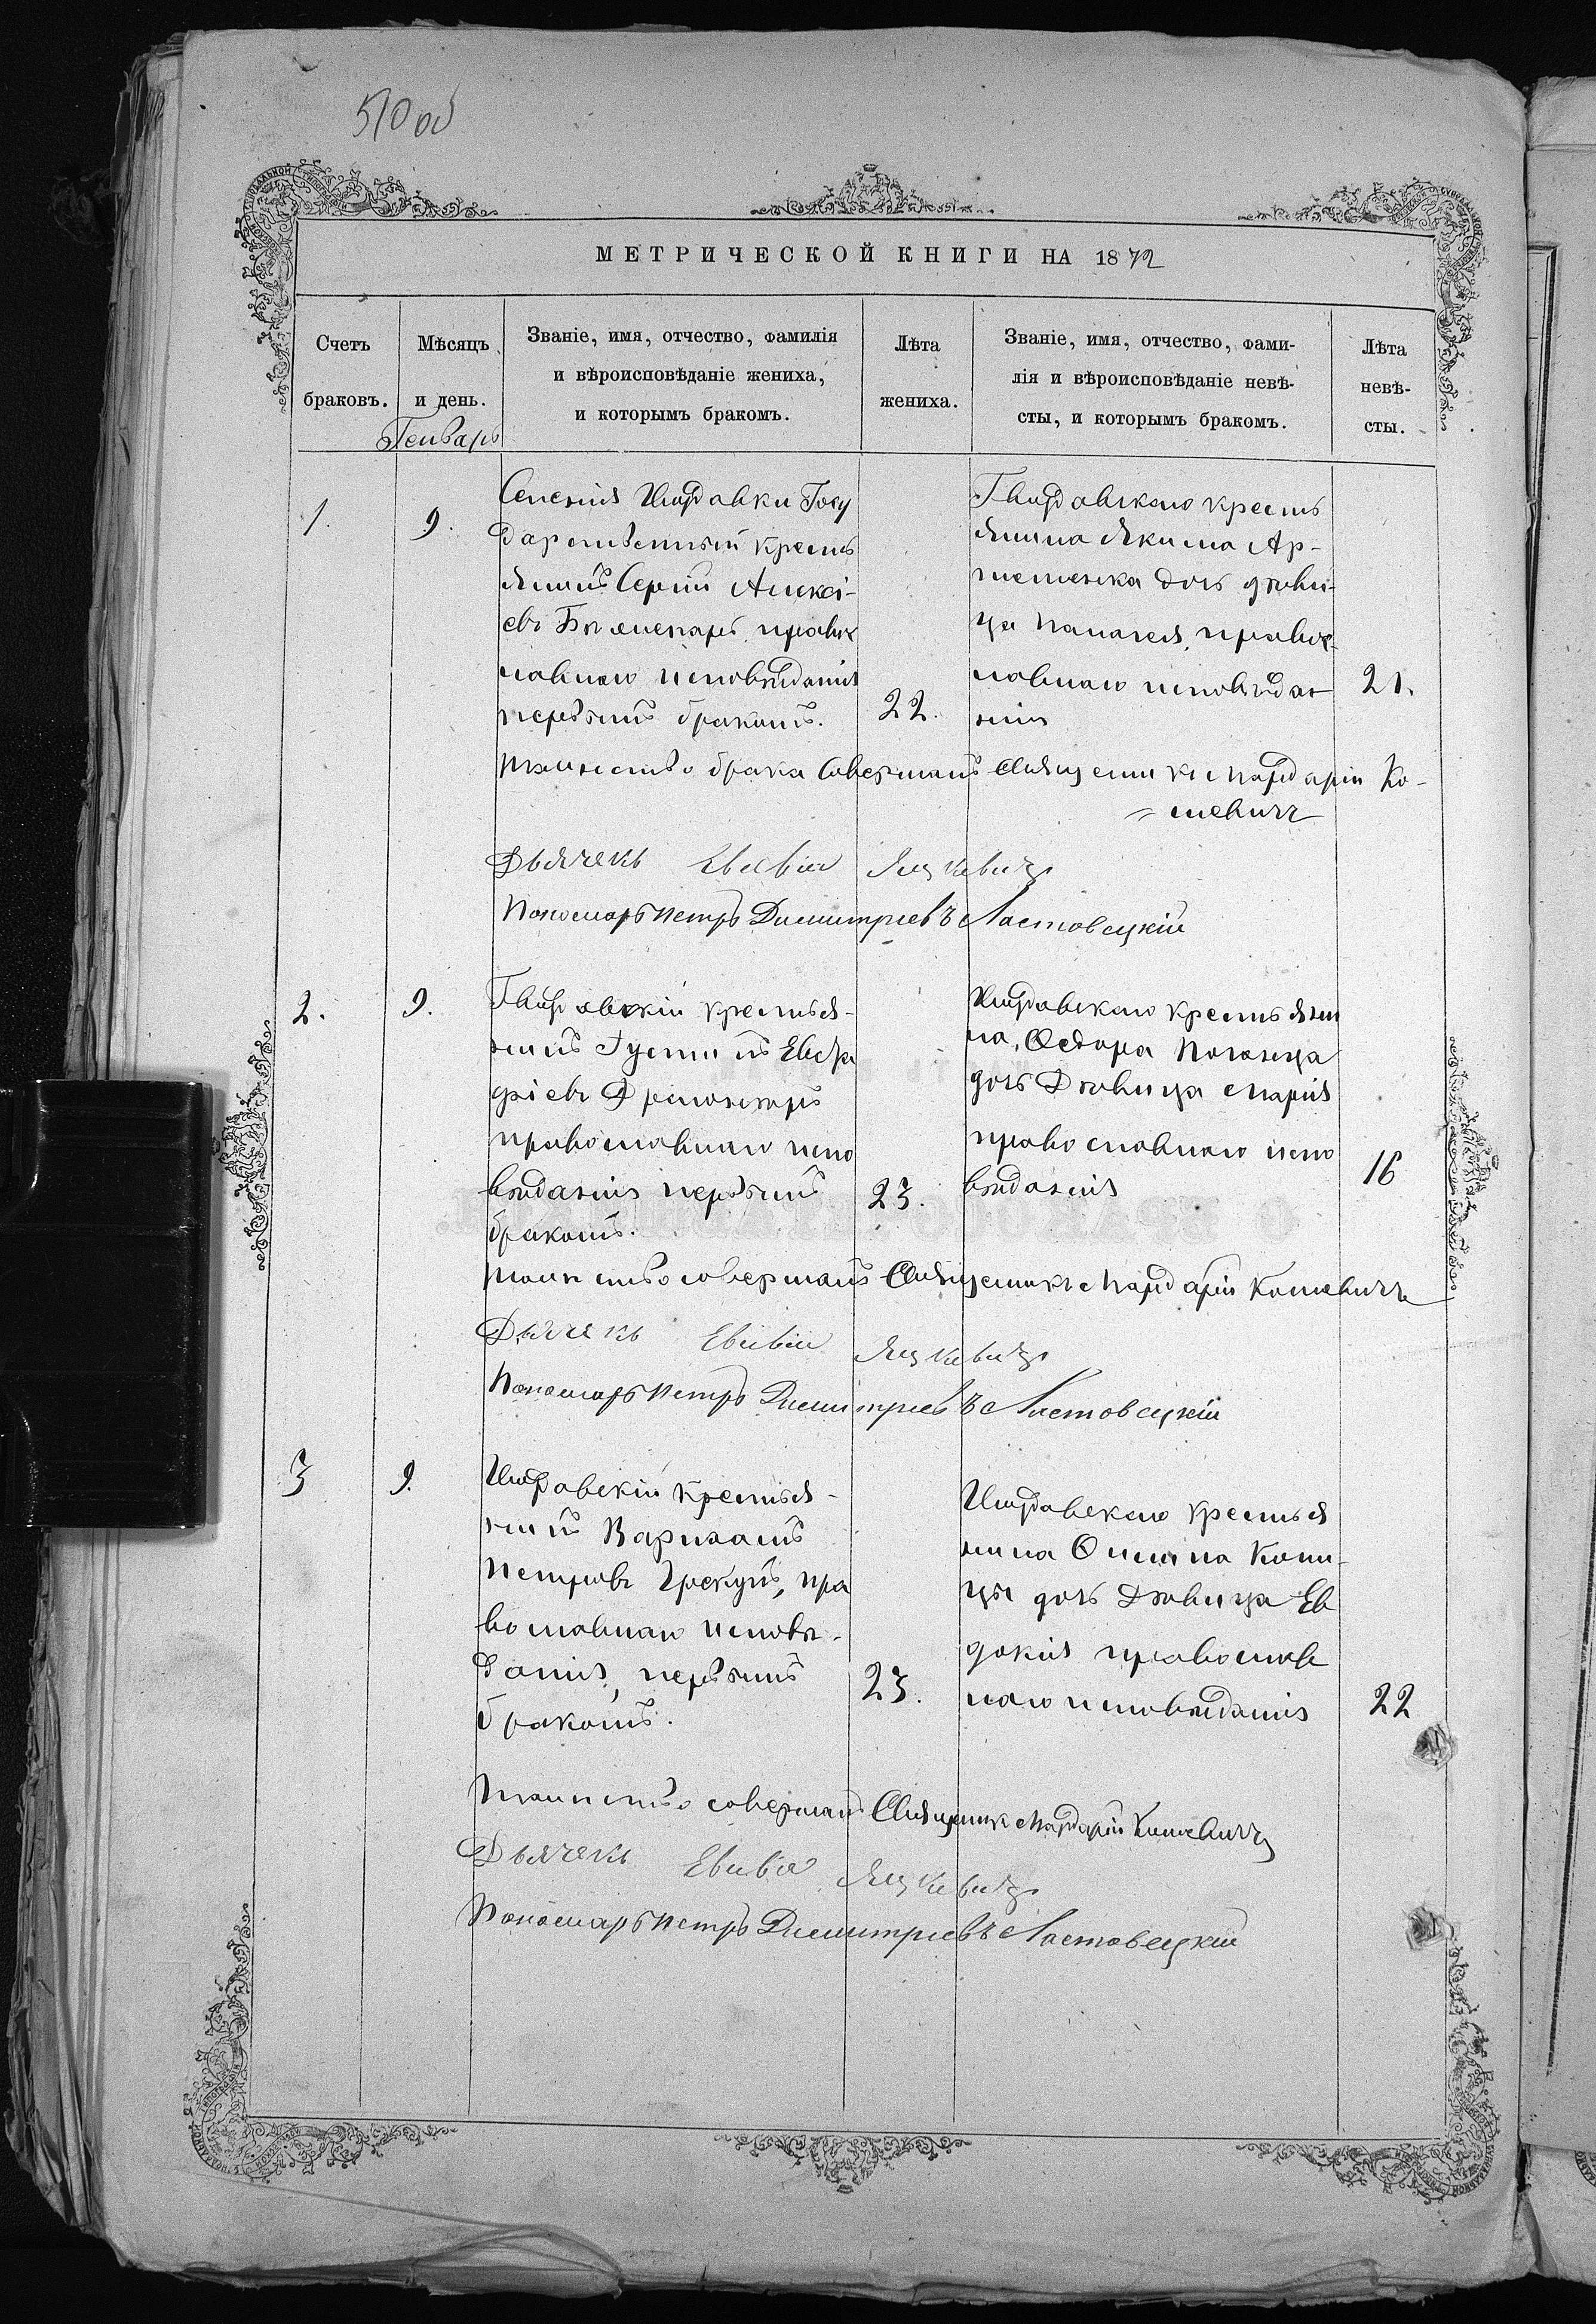 510 об
МЕТРИЧЕСКОЙ КНИГИ НА 1872
Счетъ браковъ.
Мѣсяцъ и день.
Званіе, имя, отчество, фамилія
и вѣроисповѣданіе жениха,
и которымъ бракомъ.
Лѣта жениха.
Званіе, имя, отчество, фами-
лія и вѣроисповѣданіе невѣ-
сты, и которымъ бракомъ.
Лѣта невѣ-
сты.
Генварь
1.
9.
Селенія Госу
дарственный кресть
янинъ Сергій Алексі-
евъ правос
лавнаго исповѣданія
первымъ бракомъ.
22.
крестъ
янина Якима Ар-
теменка дочь дѣви-
ца Панагея, правос-
лавнаго исповѣда-
нія
21.
Таинство брака совершалъ Священникъ Мардарій Ко-
=шевичъ
Дьячекъ Евсевій Яцкевичъ
Пономарь Петръ Димитріевъ Ластовецкій
2.
9.
крестья-
нинъ Густинъ Евста
фіевъ
православнаго испо
вѣданія первымъ
бракомъ.
23.
крестьяни
на, Ѳедора
дочь Дѣвица Марія
православнаго испо
вѣданія
16
Таинство совершалъ Священникъ Мардарій Кошевичъ
Дьячекъ Евсевій Яцкевичъ
Пономарь Петръ Димитріевъ Ластовецкій
3
9.
крестья-
нинъ Варлаамъ
Петровъ Грекулъ, пра
вославнаго исповѣ-
данія, первымъ
бракомъ.
23.
крестья
нина
дочь Дѣвица Ев
докія православ
наго исповѣданія
22
Таинство совершалъ Священникъ Мардарій Кошевичъ
Дьячекъ Евсевій Яцкевичъ
Пономарь Петръ Димитріевъ Ластовецкій